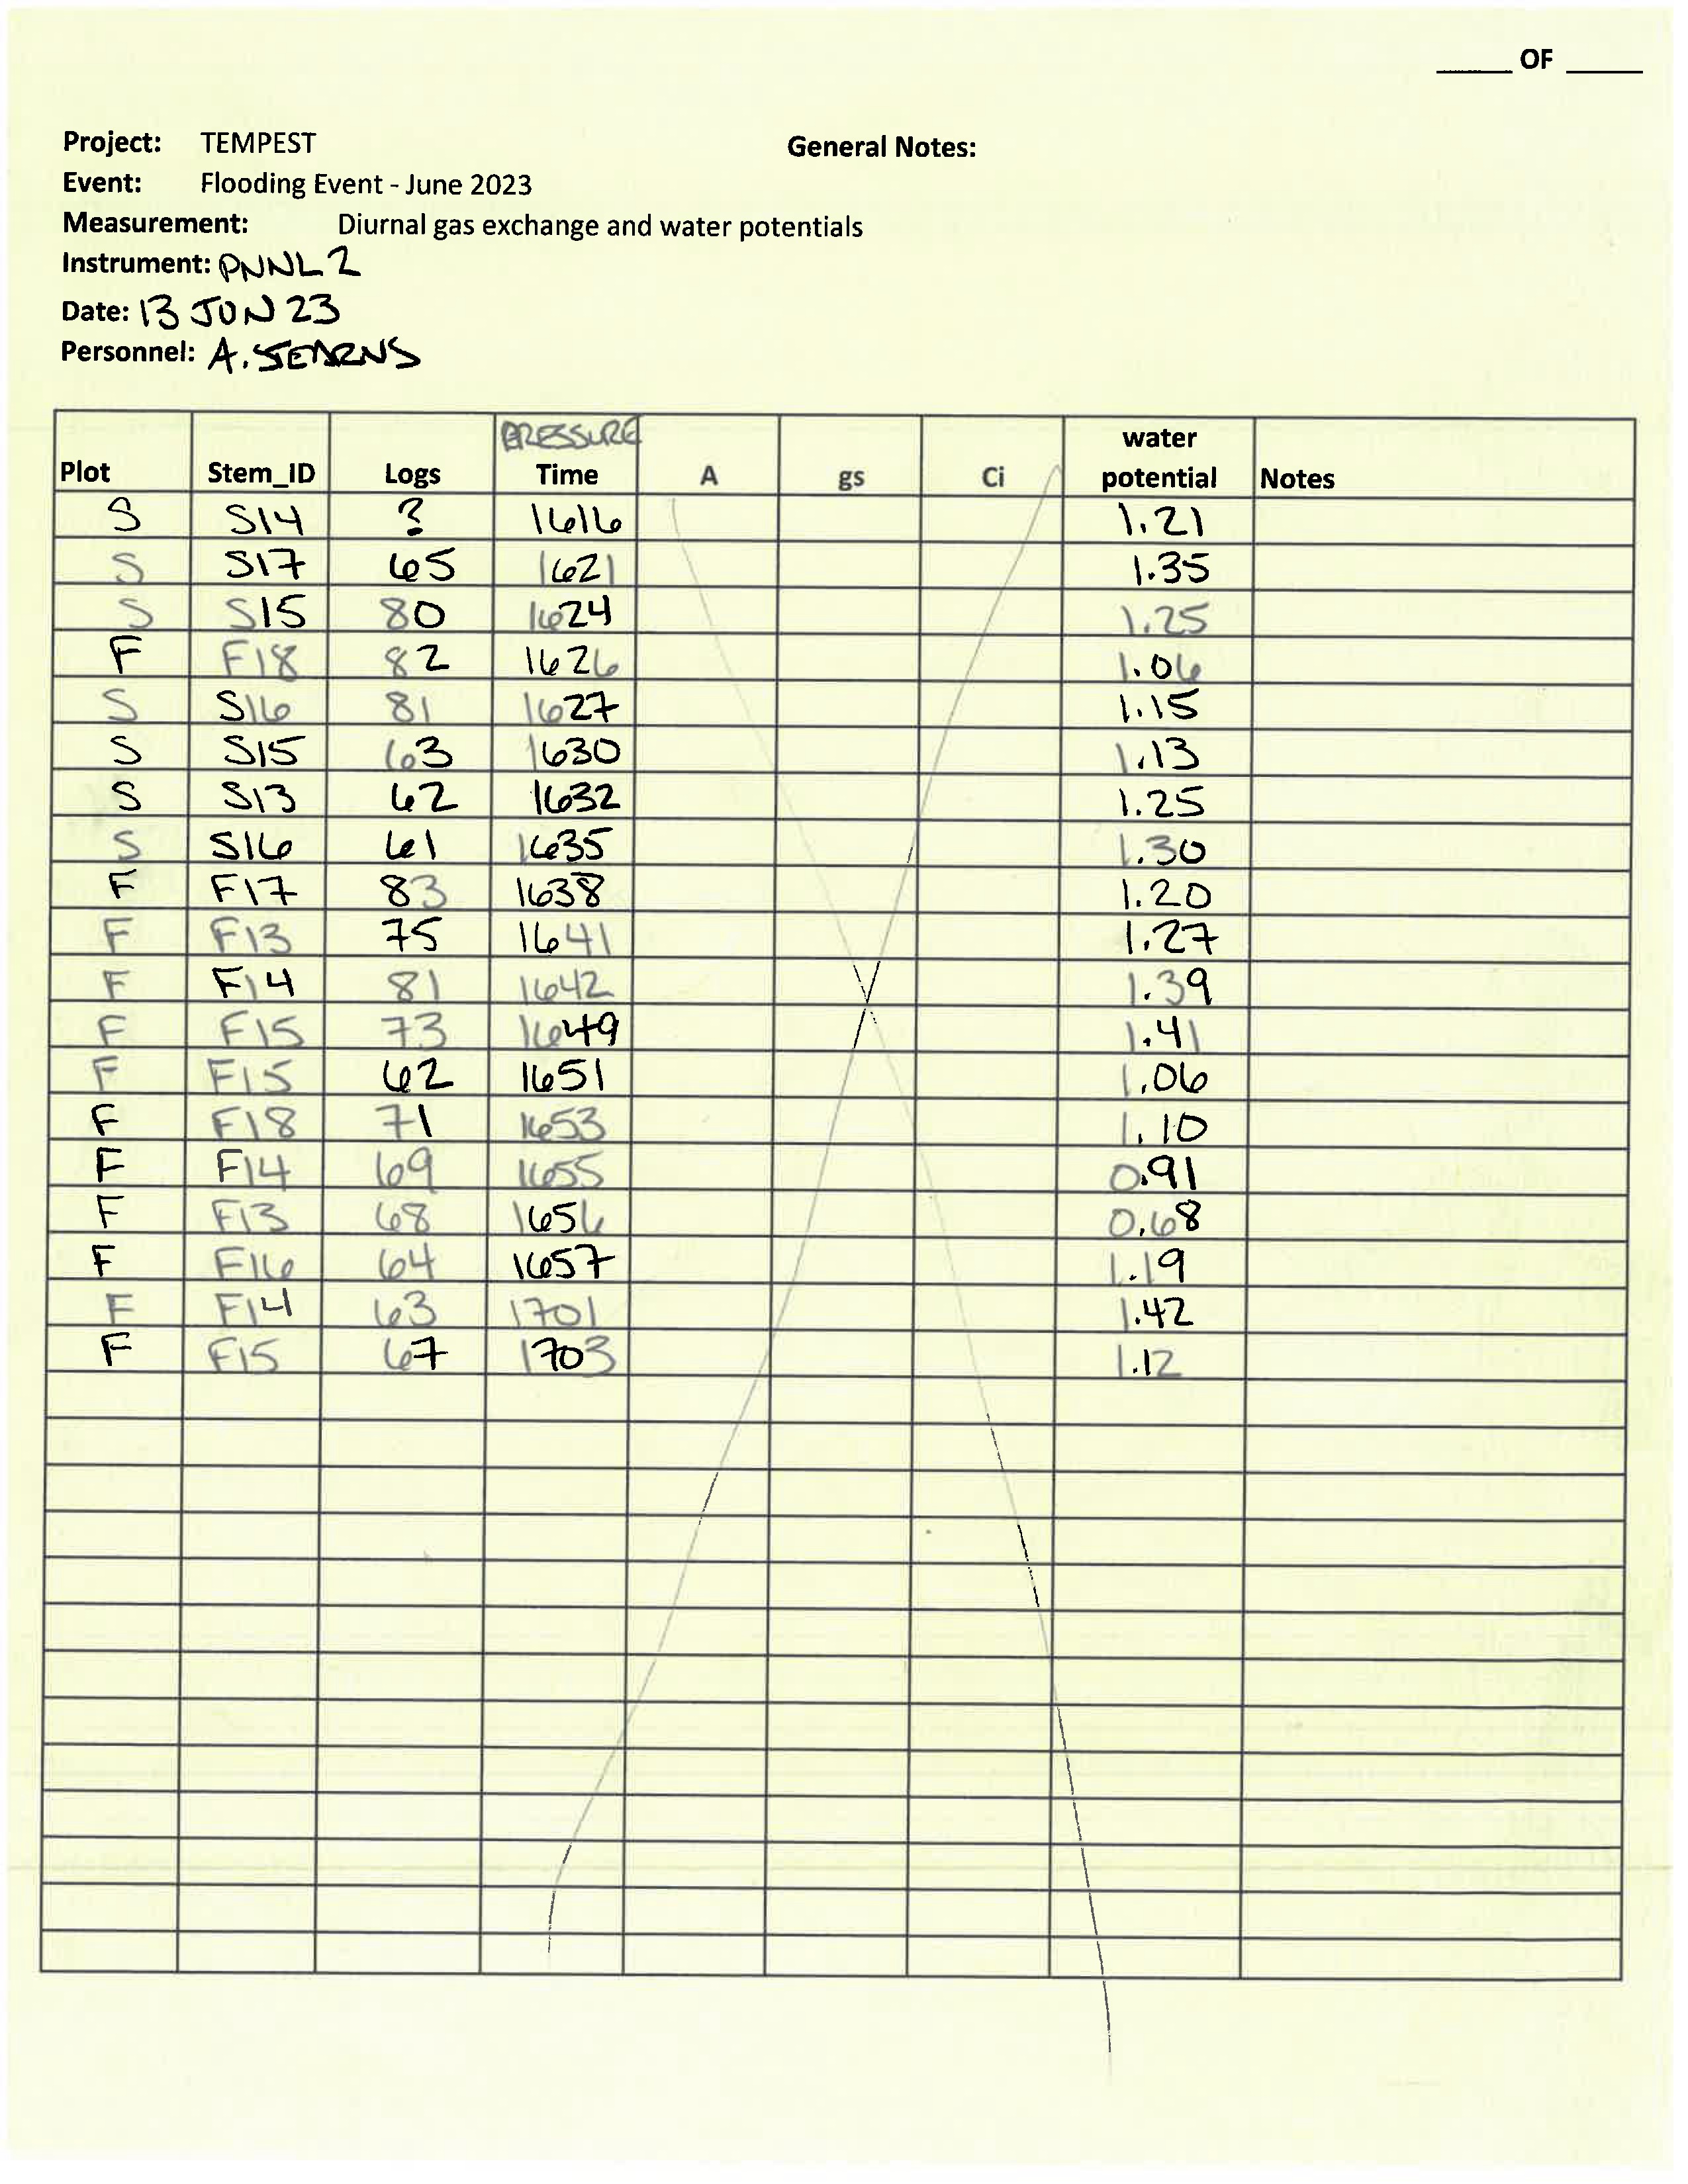 ____ OF ____
Project: TEMPEST General Notes:
Event: Flooding Event - June 2023
Measurement: Diurnal gas exchange and water potentials
Instrument: PNNL 2
Date: 13 JUN 23
Personnel: A. STEARNS
PRESSURE water
Plot Stem_ID Logs Time A gs Ci potential Notes
S S14 ? 1616 1.21
S S17 65 1621 1.35
S S15 80 1624 1.25
F F18 82 1626 1.06
S S16 81 1627 1.15
S S15 63 1630 1.13
S S13 62 1632 1.25
S S16 61 1635 1.30
F F17 83 1638 1.20
F F13 75 1641 1.27
F F14 81 1642 1.39
F F15 73 1649 1.41
F F15 62 1651 1.06
F F18 71 1653 1.10
F F14 69 1655 0.91
F F13 68 1656 0.68
F F16 64 1657 1.19
F F14 63 1701 1.42
F F15 67 1703 1.12